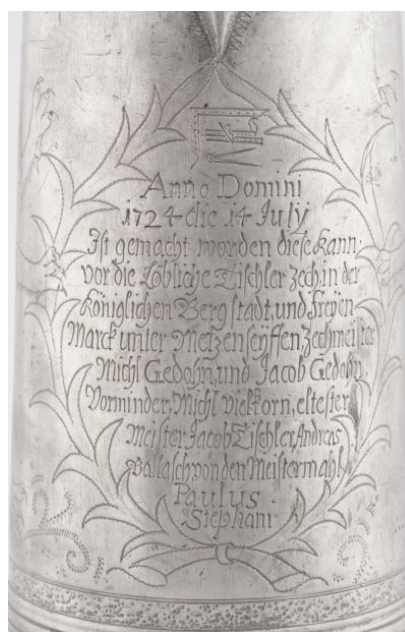 Anno Domini
1724 die 14 Julÿ
Ist gemacht worden diese Kann
vor die Löbliche Tischler Zech in der
Königlichen Berg stadt, und Freÿen
Marck unter Metzenseÿffen, Zechmeister
Michl Gedohn, und Jacob Gedohn
Vorminder, Michl vielkorn, eltester
Meister Jacob Tischler, Andreas
Ballasch, von den Meistermahl
Paulus
Stephani